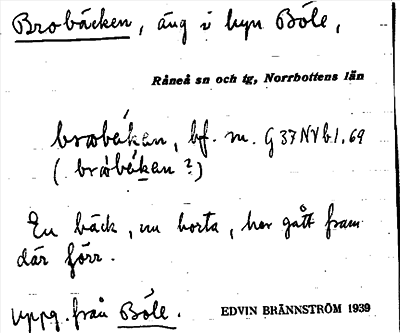 Brobäcken, äng i byn Böle,
Råneå sn och tg, Norrbottens län
bf. m. G 33 NV b.1, 69
En bäck, nu borta, har gått fram
där förr.
uppg. från Böle.
EDVIN BRÄNNSTRÖM 1939